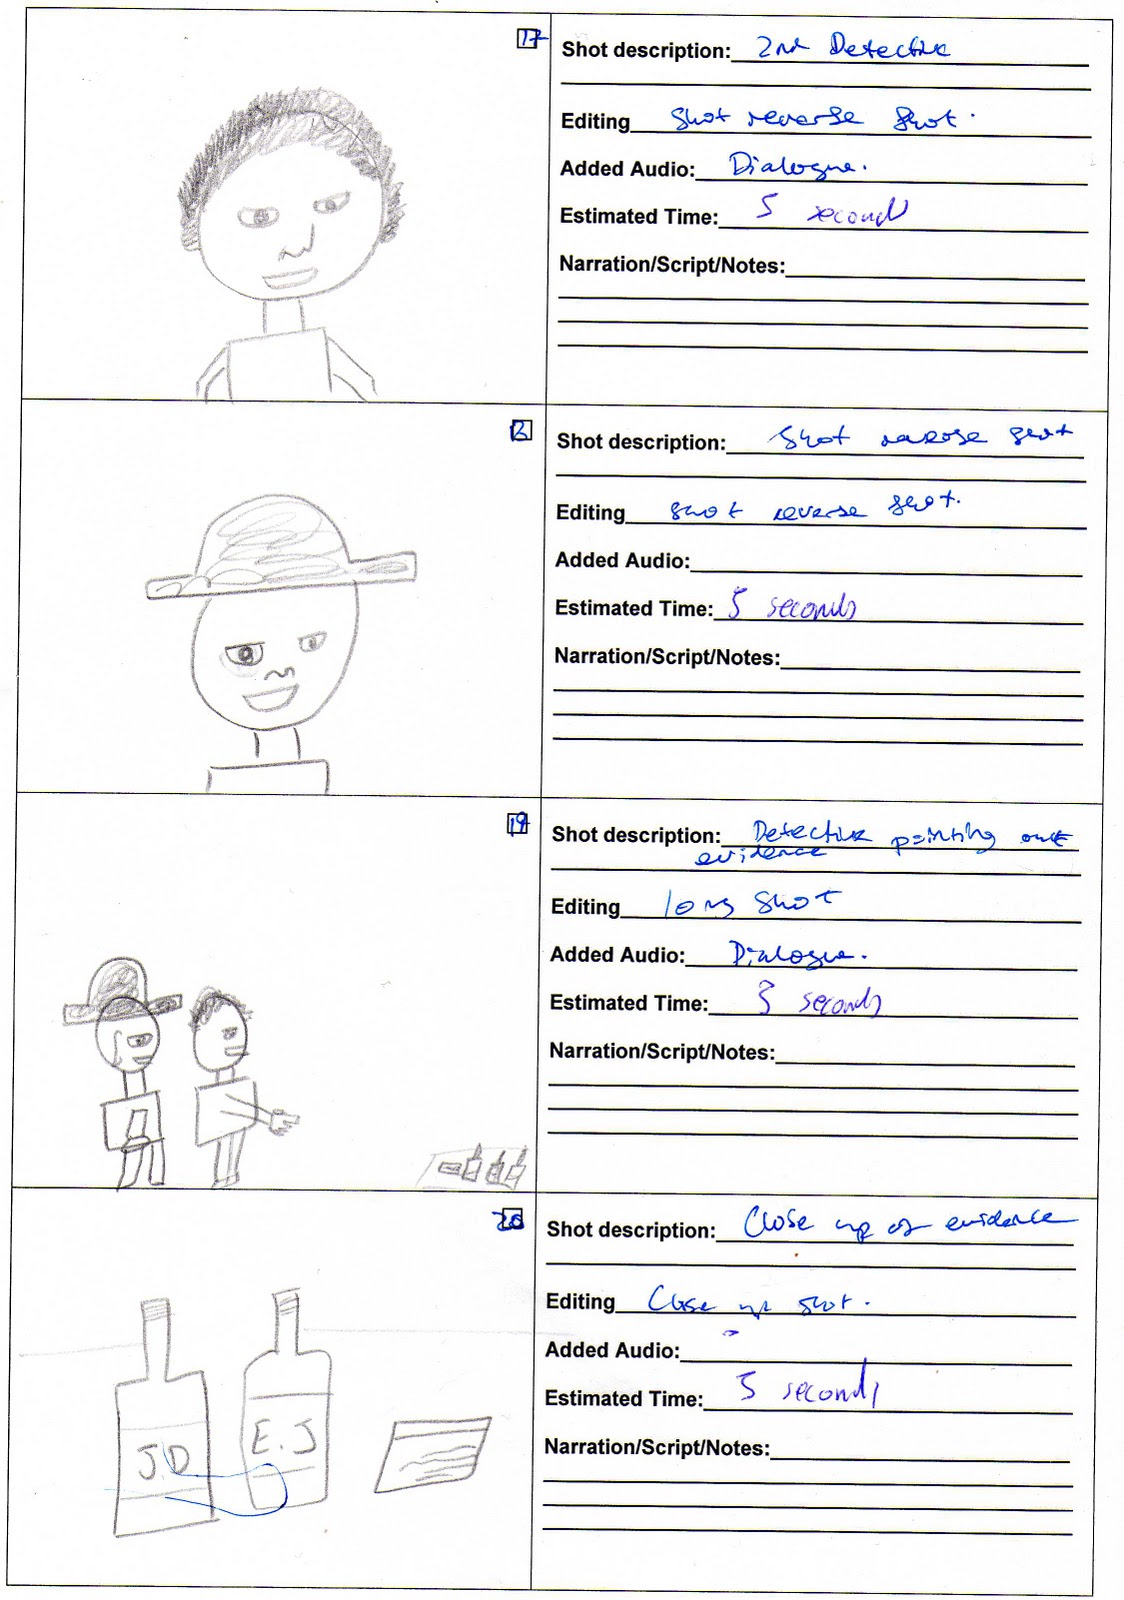 17
Shot description: 2nd Detective
Editing shot reverse shot.
Added Audio: Dialogue.
Estimated Time: 5 seconds
Narration/Script/Notes:
Shot description: shot reverse shot
Editing shot reverse shot.
Added Audio:
Estimated Time: 5 seconds
Narration/Script/Notes:
19
Shot description: Detective pointing out
evidence
Editing long shot
Added Audio: Dialogue.
Estimated Time: 3 seconds
Narration/Script/Notes:
20
Shot description: Close up of evidence
Editing Close up shot.
Added Audio: -
Estimated Time: 5 seconds
Narration/Script/Notes:
J.D
E.J